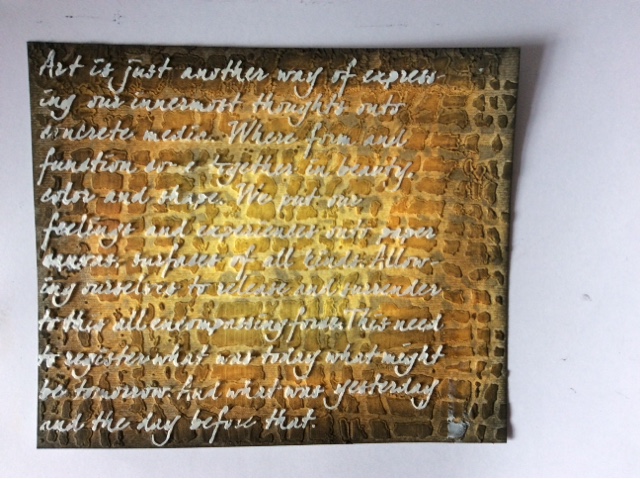 Art is just another way of express-
ing our innermost thoughts onto
concrete media. Where form and
function come together in beauty.
color and shape. We put our
feelings and experiences onto paper
canvas. surfaces of all kinds. Allow-
ing ourselves to release and surrender
to this all encompassing force. This need
to register what was today what might
be tomorrow. And what was yesterday
and the day before that.